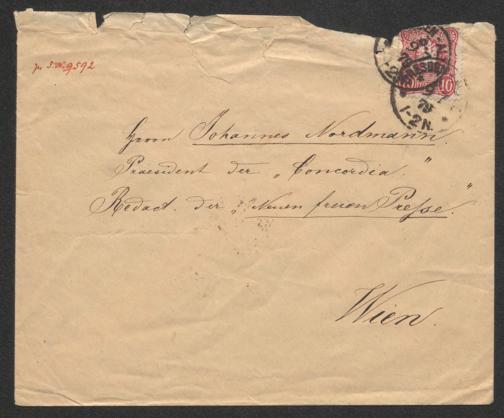 zu I.N. 9592
Herrn Johannes Nordmann
Praesident der „Concordia"
Redact. der „Neuen freien Presse"
Wien.
10
DRESDEN
78
1-2 N.